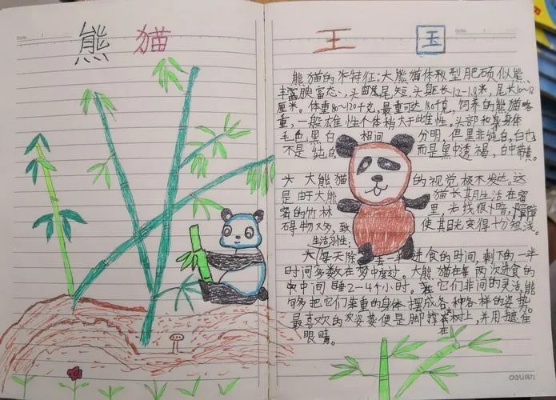 熊猫 王国
熊猫的外特征:大熊猫体型肥硕似熊、
丰富腴富态、头圆尾短、头躯长1.2-1.8米,尾长10~12
厘米。体重80~120千克,最重可达180千克,饲养的熊猫略
重,一般雄性个体稍大于雌性。头部和身体
毛色黑白 相间 分明,但黑非纯黑,白也
不是纯白 而是黑中透褐,白中带黄。
大熊猫 的视觉极不发达,这
是由于大熊 猫长其月生活在密
密的竹林 里,光线很暗,
障碍物又多,致 使其目光变得十分短浅。
生活习性:
大 每天除 去一半进食的时间,剩下的一半
时间多数在梦中度过。大熊猫在每两次进食的
中间睡2-4个小时。 它们非同的灵活,能
够把它们笨重的身体摆成各种各样的姿势。
最喜欢的姿势便是脚撑在树上,并用 遮住
眼睛。
deli